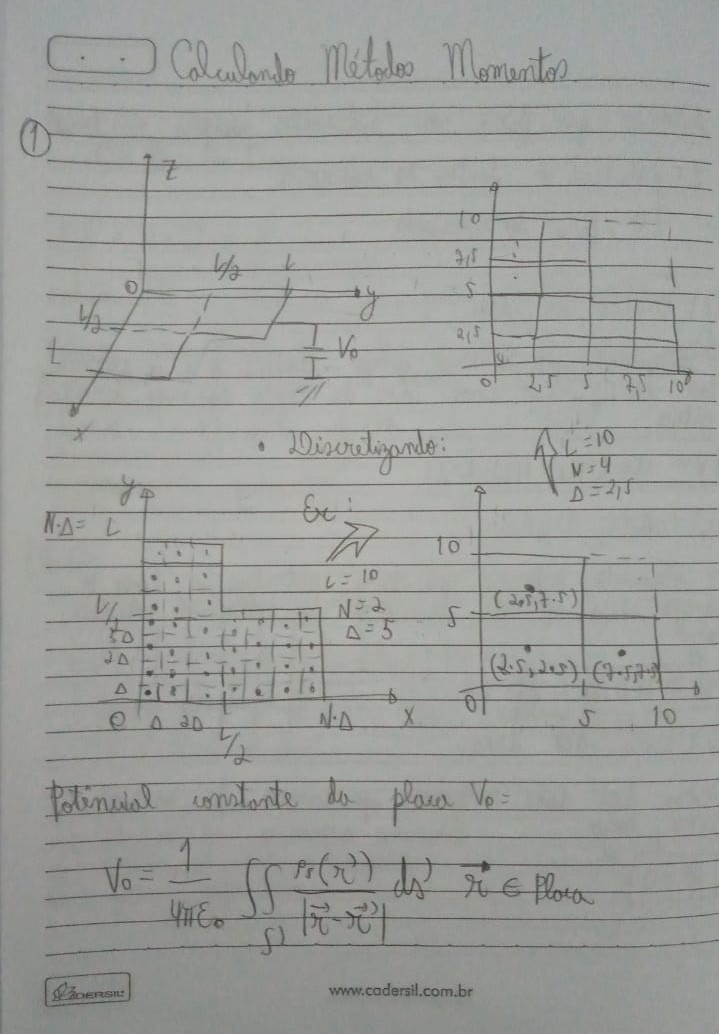 Calculando Métodos Momentos
1
z
O
L/2
L
y
L/2
L
V₀
x
10
7,5
5
2,5
0 2,5 5 7,5 10
• Discretizando:
L=10
N=4
Δ=2,5
y
N·Δ= L
Ex:
L=10
N=2
Δ=5
L/2
3Δ
2Δ
Δ
0 Δ 2Δ L/2 N·Δ x
10
(2.5,7.5)
5
(2.5,2.5) (7.5,7.5)
0 5 10
Potencial constante da placa V₀=
V₀ = 1/4πε₀ ∬ ρs(r')/|r⃗-r⃗'| ds' r⃗ ∈ Placa
CADERSIL
www.cadersil.com.br